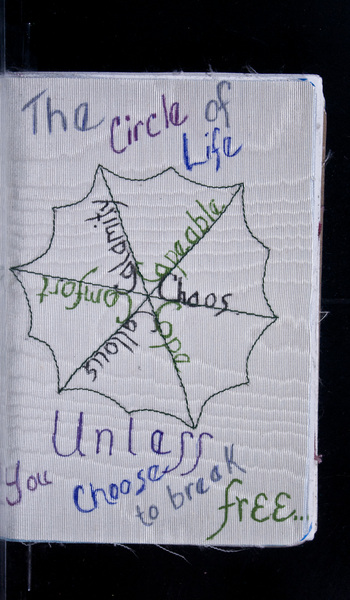 The Circle of
Life
Calamity
Capable
Chaos
Cope
Callous
Comfort
Unless
you choose to break
free...